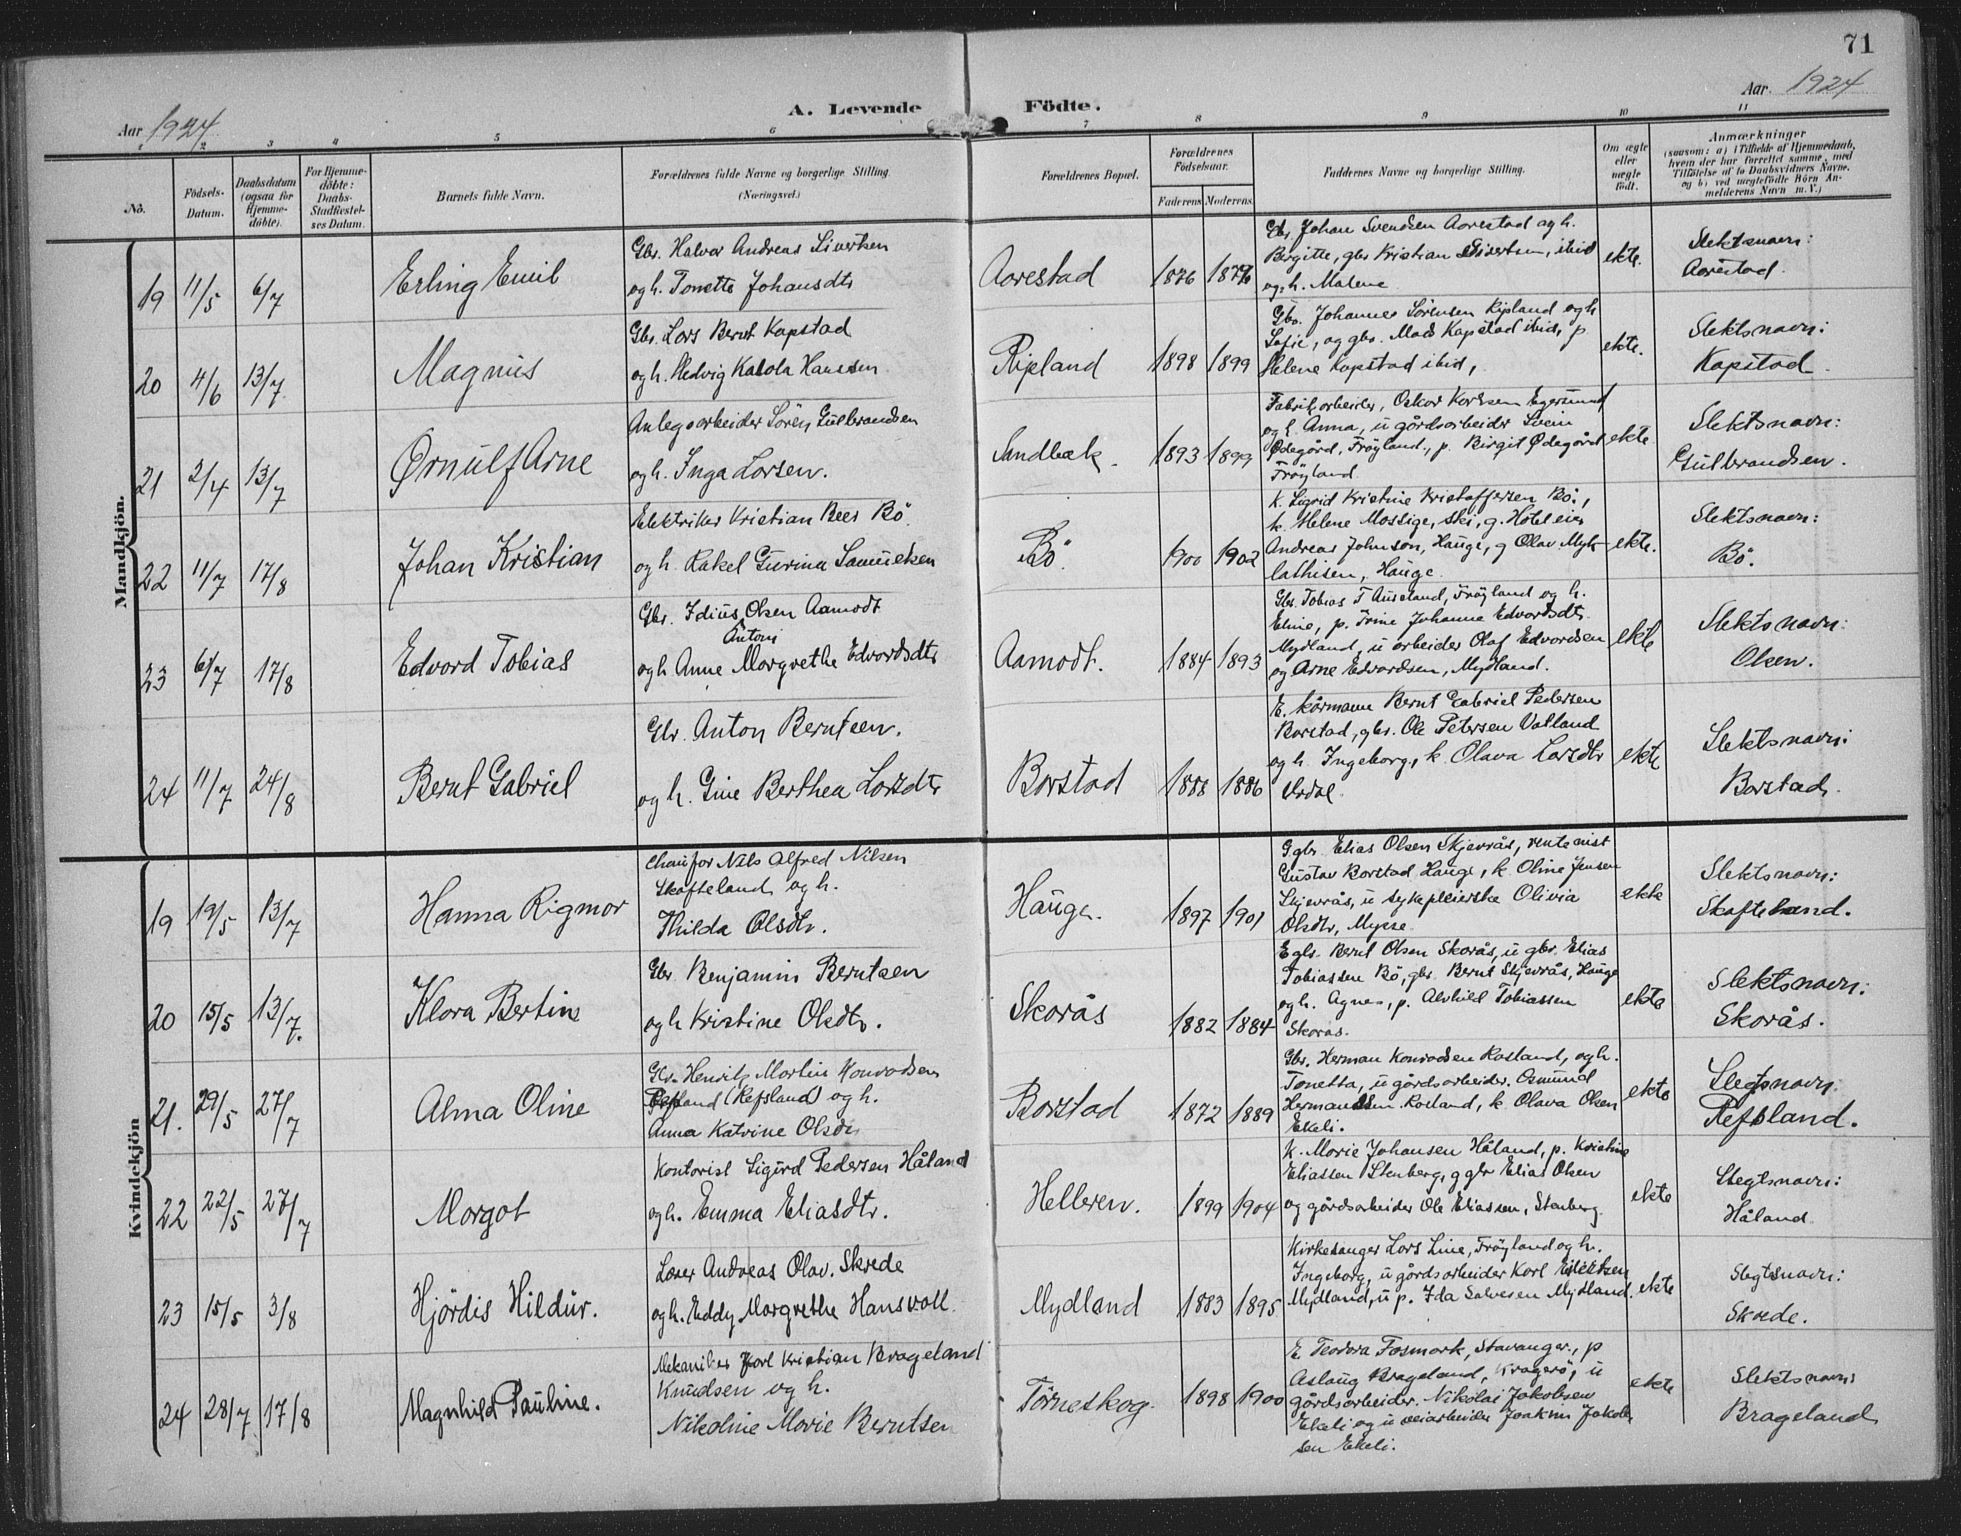 71
Aar 1924
A. Levende Födte.
Aar 1924
1 2 3 4 5 6 7 8 9 10 11
No.
Födsels-
Datum.
Daabsdatum
(ogsaa for
Hjemme-
döbte).
For Hjemme-
döbte:
Daabs-
Stadfæstel-
ses Datum.
Barnets fulde Navn.
Forældrenes fulde Navne og borgerlige Stilling
(Næringsvei.)
Forældrenes Bopæl.
Forældrenes
Födselsaar.
Faderens Moderens
Faddernes Navne og borgerlige Stilling.
Om ægte
eller
uægte
födt.
Anmærkninger
(saasom: a) i Tilfælde af Hjemmedaab,
hvem der har forrettet samme, med
Tilföielse af to Daabsvidners Navne,
og b) ved uægtefödte Börn An-
melderens Navn m. V.)
Mandkjön.
19 11/5 6/7 Erling Emil
Gbr. Halvor Andreas Sivertsen
og h. Tonette Johansdtr
Aarestad 1876 1876
Gbr. Johan Svendsen Aarestad og h.
Birgitte, gbr Kristian Sivertsen, ibid
og h. Malene
ekte.
Slektsnavn:
Aarestad.
20 4/6 13/7 Magnus
Gbr. Lars Berut Kapstad
og h. Hedvig Karola Hansen
Ripland 1898 1899
Gbr. Johannes Sörensen Ripland og h
Sofie, og gbr. Mads Kapstad ibid, p
Helene Kapstad ibid,
ekte.
Slektsnavn:
Kapstad.
21 2/4 13/7 Ørnulf Arne
Anlegsarbeider Sören Gulbrandsen
og h. Inga Larsen.
Sandbæk. 1893 1899
Fabrikarbeider, Oskar Karlsen Egersund
og h. Anna, u gårdsarbeider Svein
Ødegård, Fröyland, p. Birgit Ødegård
Fröyland
ekte
Slektsnavn:
Gulbrandsen.
22 11/7 17/8 Johan Kristian
Elektriker Kristian Beer Bö
og h. Rakel Gurina Samuelsen
Bö. 1900 1902
k. Sigrid Kristine Kristoffersen Bö,
k. Helene Mossige, ski, g. Hoteleier
Andreas Johnson, Hauge, g Olav Myk-
lathisen, Hauge
ekte.
Slektsnavn:
Bö.
23 6/7 17/8 Edvard Tobias
Gbr. Idius Olsen Aamodt
Antoni
og h Anne Margrethe Edvardsdtr
Aamodt. 1884 1893
Gbr. Tobias T Aurstand, Fröyland og h.
Eline, p. Trine Johanne Edvardsdtr
Mydland, u arbeider Olaf Edvardsen
og Arne Edvardsen, Mydland.
ekte
Slektsnavn:
Olsen.
24 11/7 24/8 Berut Gabriel
Gbr. Anton Berntsen.
og h. Gine Berthea Larsdtr
Barstad 1888 1886
E. kårmann Bernt Gabriel Pedersen
Barstad, gbr. Ole Petersen Vatland
og h. Ingeborg, k. Olava Larsdtr
Urdal.
ekte
Slektsnavn:
Barstad.
Kvindekjön
19 19/5 13/7 Hanna Rigmor
Chaufor Nils Alfred Nilsen
Skafteland og h.
Thilda Olsdtr.
Hauge. 1897 1901
G gbr. Elias Olsen Skjevrås, rentenist
Gustav Barstad Hauge, k. Oline Jensen
Skjevrås, u sykepleierske Olivia
Olsdtr, Mysse
ekte
Slektsnavn:
Skafteland.
20 15/5 13/7. Klara Bertine
Gbr. Benjamin Berntsen
og h Kristine Olsdtr.
Skorås 1882 1884
E gbr. Bernt Olsen Skorås, u gbr. Elias
Tobiassen Bö, gbr. Bernt Skjevrås, Hauge
og h. Agnes, p. Alvhild Tobiassen
Skorås.
ekte
Slektsnavn:
Skorås.
21. 29/5 27/7 Alma Oline
Gbr. Henrik Martin Konradsen
(Refsland) og h.
Anna Katrine Olsdtr
Barstad 1872 1889
Gbr. Herman Konradsen Rosland, og h.
Tonetta, u gårdsarbeider. Osmund
Hermandsen. Rosland, k Olava Olsen
Ekeli.
ekte
Slegtsnavn:
Refsland.
22 22/5 27/7 Margot
Kontorist Sigurd Pedersen Håland
og h. Emma Eliasdtr.
Helleren. 1899 1904
K. Marie Johansen Håland, p. Kristine
Eliassen Stenberg, g gbr Elias Olsen
og gårdsarbeider Ole Eliassen, Stenberg
ekte
Slegtsnavn:
Håland
23 15/5 3/8 Hjördis Hildur.
Lærer Andreas Olav. Skrede
og h. Eddy Margrethe Hansvoll.
Mydland 1883 1895
Kirkesanger Lars Line, Fröyland og h.
Ingeborg, u gårdsarbeider Karl Eliksen
Mydland, u p. Ida Salvesen Mydland.
ekte
Slegtsnavn:
Skrede.
24 28/7 17/8 Magnhild Pauline.
Mekaniker Karl Kristian Brageland
Knudsen og h.
Nikoline Marie Berntsen
Törneskog. 1898 1900
E. Teodora Fosmark, Stavanger, p
Aslaug Brageland, Kragerö, u
gårdsarbeider. Nikolai Jakobsen
Ekeli og u veiarbeider Joakim Jakob-
sen Ekeli.
ekte
Slektsnavn:
Brageland